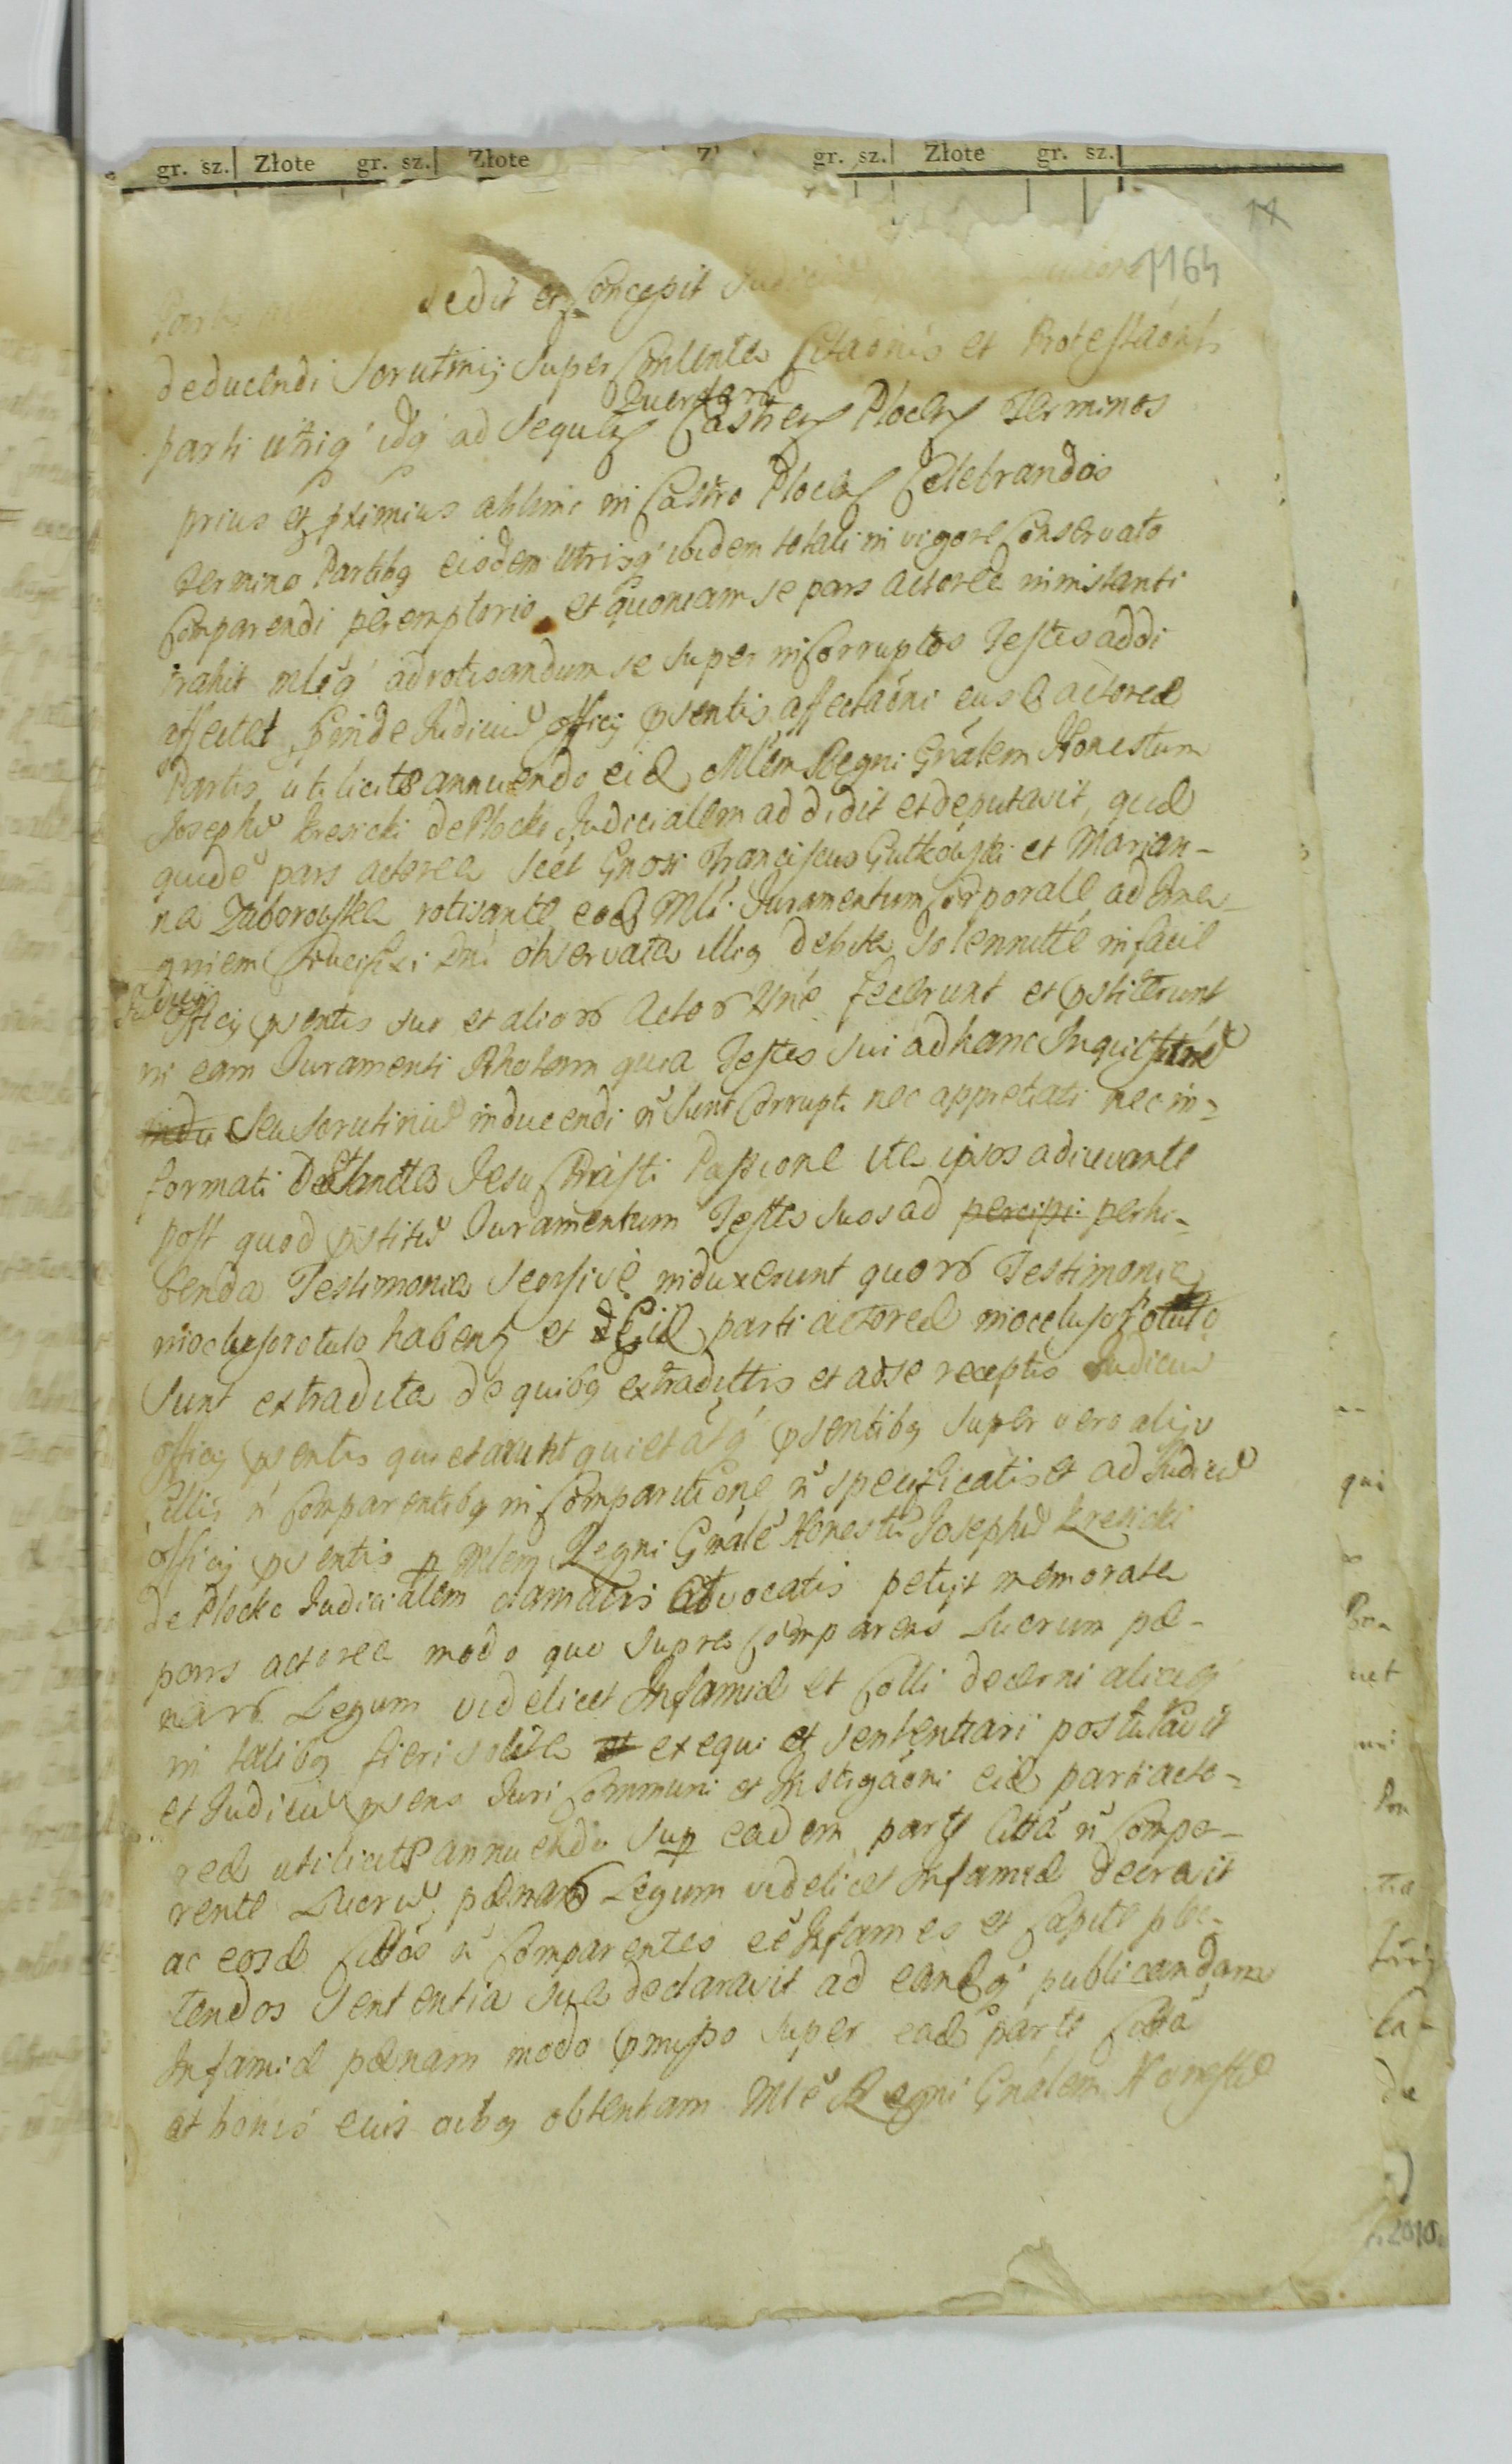 gr. sz. Złote gr. sz. Złote gr. sz. Złote gr. sz.
14
1164
sedit et Concepit
deducendi Scrutinij Super Contenta Citaõnis et Protestaõnis
Querelar
parti utriq' idq' ad Sequen Castren Plocen Terminos
prius et pximius abhinc in Castro Plocen Celebrandos
Termino Partibq eisdem utrisq' ibidem totali in vigore Conservato
Comparendi peremptorio et quoniam se pars actorea in instanti
trahit mlẽq' ad rotisandum se super incorruptos Testes addi
affectat proinde Judiciũ officij psentis affectaõni eius actoreæ
Partis uti licitæ annuendo eid Mlẽm Regni Gnãlem Honestum
Josephũ Kresicki de Plocko Judicialem addidit et deputavit, quæ
quidẽ pars actorea Scet Gnosi Franciscus Gutkowski et Marian-
na Zaborowska rotisante eod Mlĩ. Juramentum Corporale ad Ima-
gniem Crucifixi Dnĩ observata illiq debita Solennitte in facie
Judicij
officij psentis suo et alior Actor Nñe fecerunt et pstiterunt
in eam Juramenti Rhotam quia Testes sui ad hanc Inquisitnẽ
indu Seu Scrutiniũ inducendi ñ sunt Corrupti nec appretiati nec in-
formati De et Sanctta Jesu Christi Passione ita ipsos adiuvante
post quod pstitũ Juramentum Testes Suos ad percipi perhi-
benda Testimonia Seorsive induxerunt quor Testimonia
in oclusorotulo haben et eid parti actoreæ in oceluso rotulo
Sunt extradita de quibq extradittis et ad se receptis Judiciũ
officij psentis quietarunt quietatq' psentibq Super vero alijs
Cittis ñ Comparentibq in Comparitione ñ specificatis et ad Judiciũ
officij psentis p Mlem Regni Gnãlẽ Honestũ Josephũ Kresicki
de Plocko Judicialem clamatis advocatis petijt memorata
pars actorea modo quo supra Comparens Lucrum pæ-
nar Legum videlicet Infamiæ et Colli decerni aliaq'
in talibq fieri solita et exequi et sententiari postulavit
et Judiciũ psens Juri Communi et Instigaõni eid parti acto-
reæ uti licitæ annuendo Sup eadem parte Cittã ñ Compa-
rente Lucrũ pænar Legum videlicet Infamiæ decravit
ac eosd Cittos ñ Comparentes eẽ Infames et Capite plec-
tendos Sententia Sua declaravit ad eandq' publicandam
Infamiæ pænam modo pmisso super eade parte Cittã
et bonis eius oibq obtentam Mlẽ Regni Gnãlem Honestũ